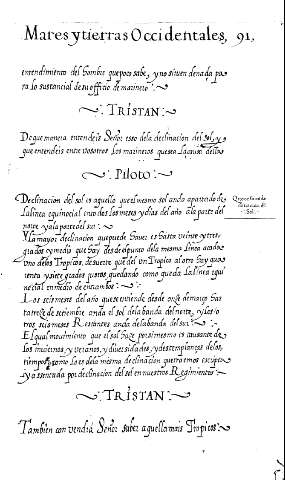 Mares y tierras Occidentales, 91,
entendimiento del hombre que poco sabe, y no sirven de nada pa
ra lo sustancial de su officio de marinero
TRISTAN
De que manera entendeis Señor esso de la declinacion del sol, y
que entendeis entre vosotros los marineros que sea la quasi della
Piloto
Declinacion del sol es aquello que el mismo sol anda apartado de
la linea equinocial en todos los meses y dias del año a la parte del
norte y a la parte del sur
Y la mayor declinacion que puede haver es hasta veinte y tres
grados y medio que hay desde el punto de la mesma linea a cada
uno de los Tropicos, de suerte que del un Tropico al otro hay qua
renta y siete grados justos quedando como queda la linea equi
nocial en medio de entrambos
Los seis meses del año que se entiende desde onze de março has
ta treze de setiembre anda el sol de la banda del norte, y los o
tros seis meses Restantes anda de la banda del sur
El qual movimiento que el sol haze por si mesmo es causante de
los inviernos, y veranos, y diversidades, y destemplanças de los
tiempos, como la es de la mesma declinacion que traemos escripta
y assentada por declinacion del sol en nuestros Regimientos
TRISTAN
Tambien convendria Señor saber a que llamais Tropicos
Que cosa sea de
clinacion del
Sol